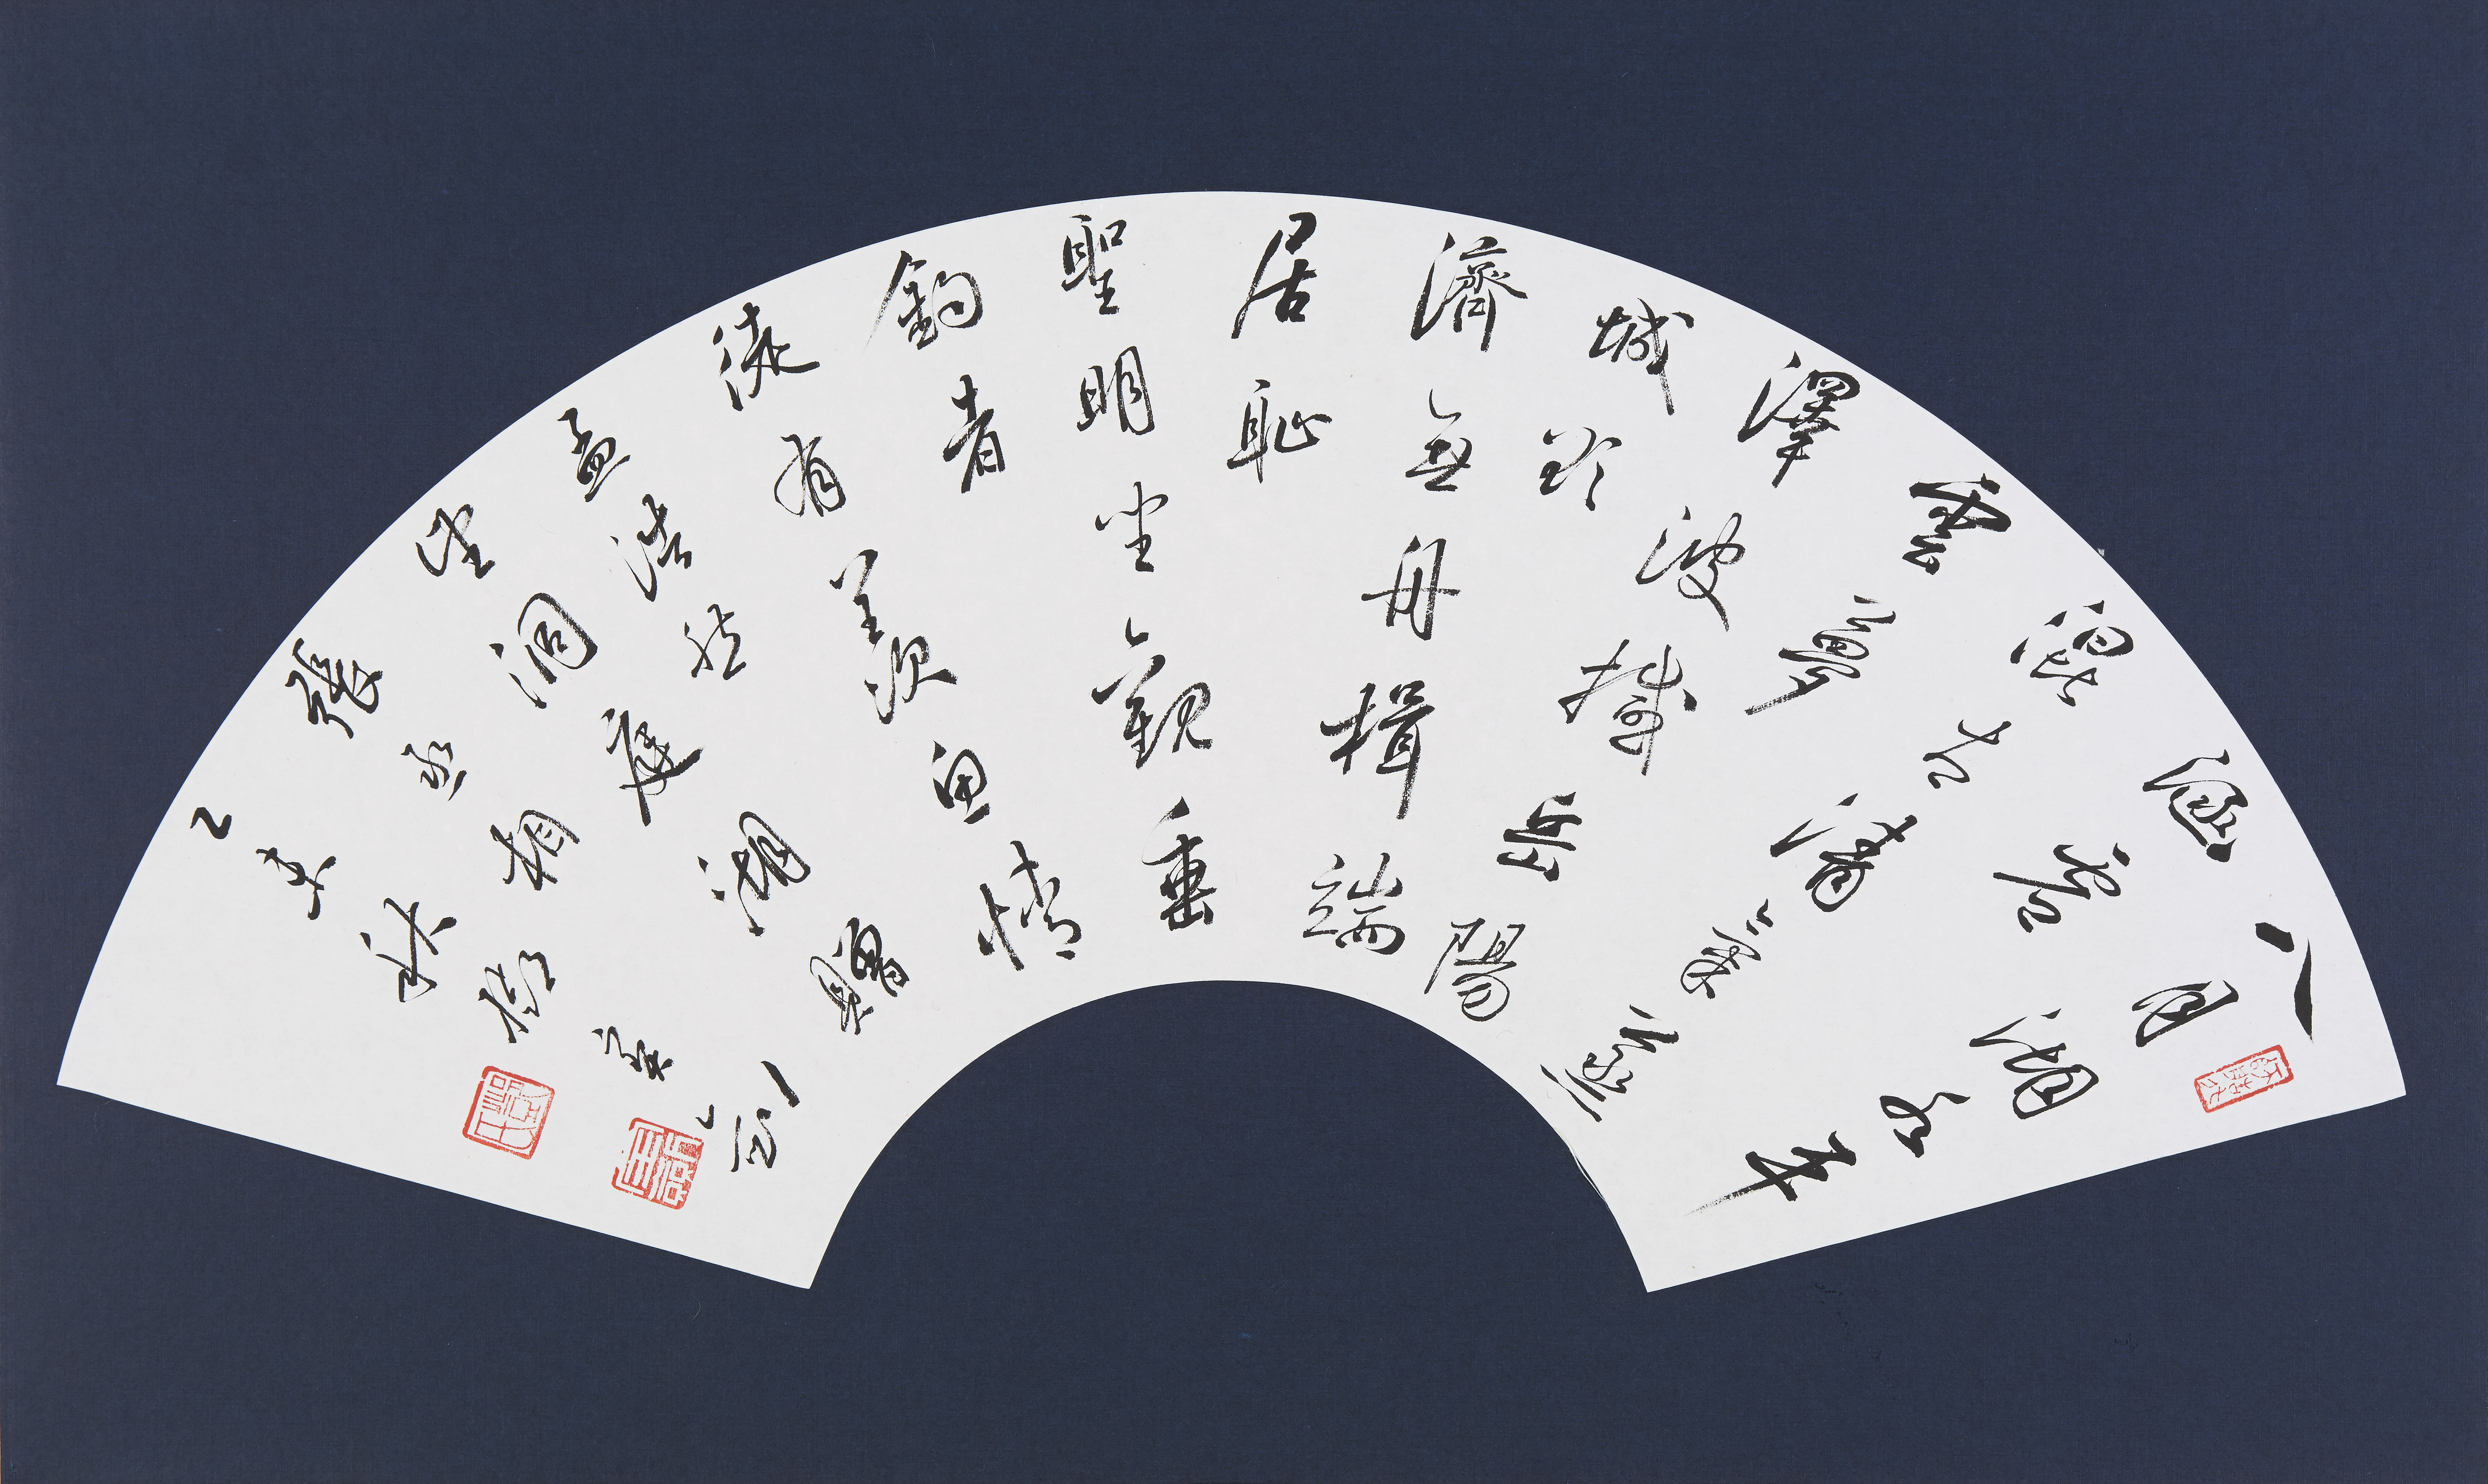 八月湖水平
涵虛
混太清氣蒸
雲夢
澤波撼岳陽
城欲
濟無舟楫端
居恥
聖明坐觀垂
釣者
徒有羨魚情
孟浩然
望洞庭湖贈
張丞相
乙亥秋